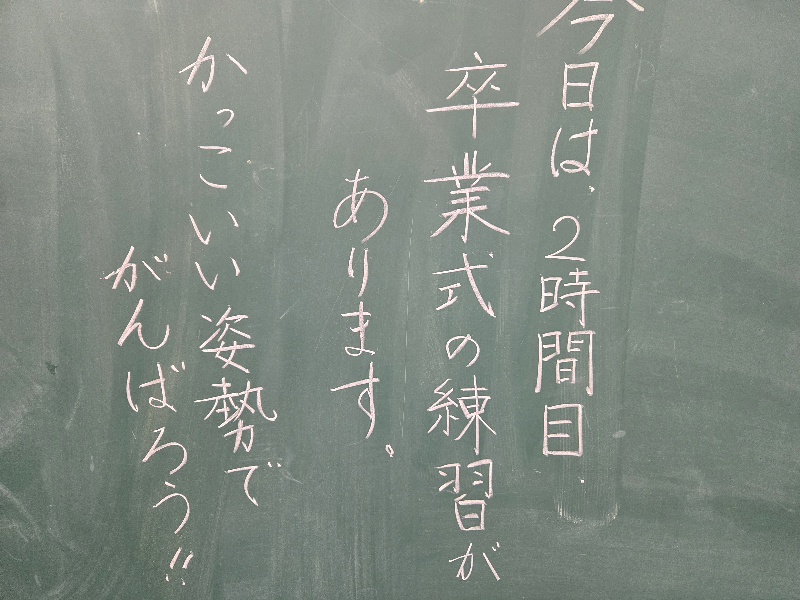 今日は、2時間目
卒業式の練習が
あります。
かっこいい姿勢で
がんばろう!!